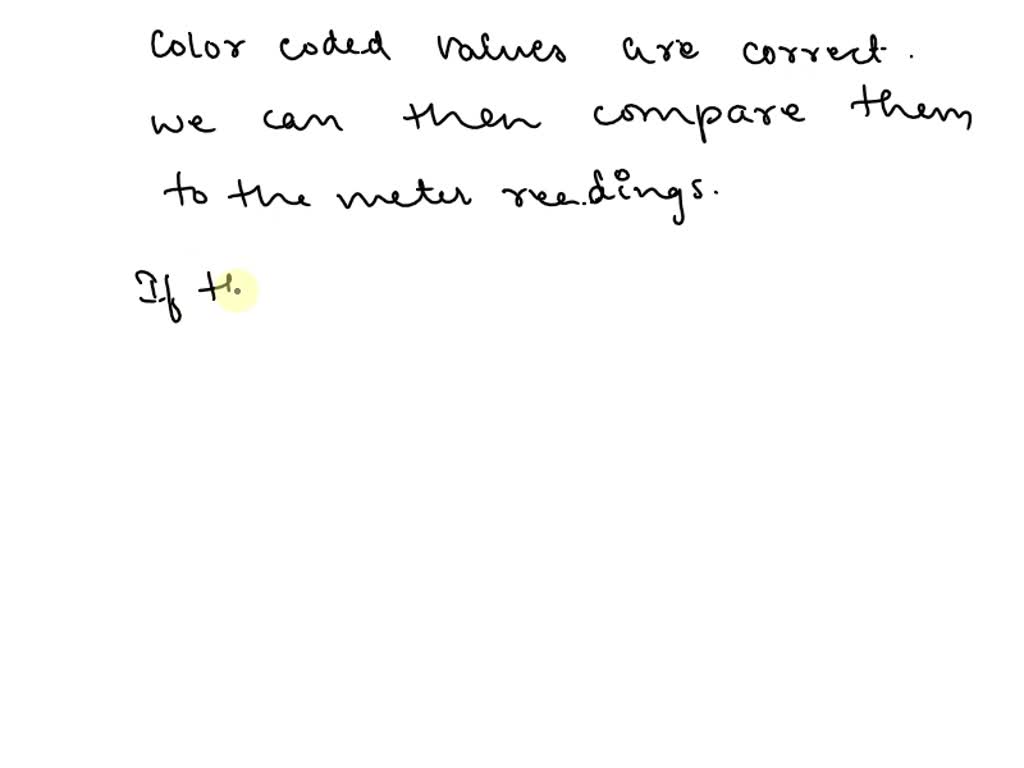 Color coded values are correct.
we can then compare them
to the meter readings.
If